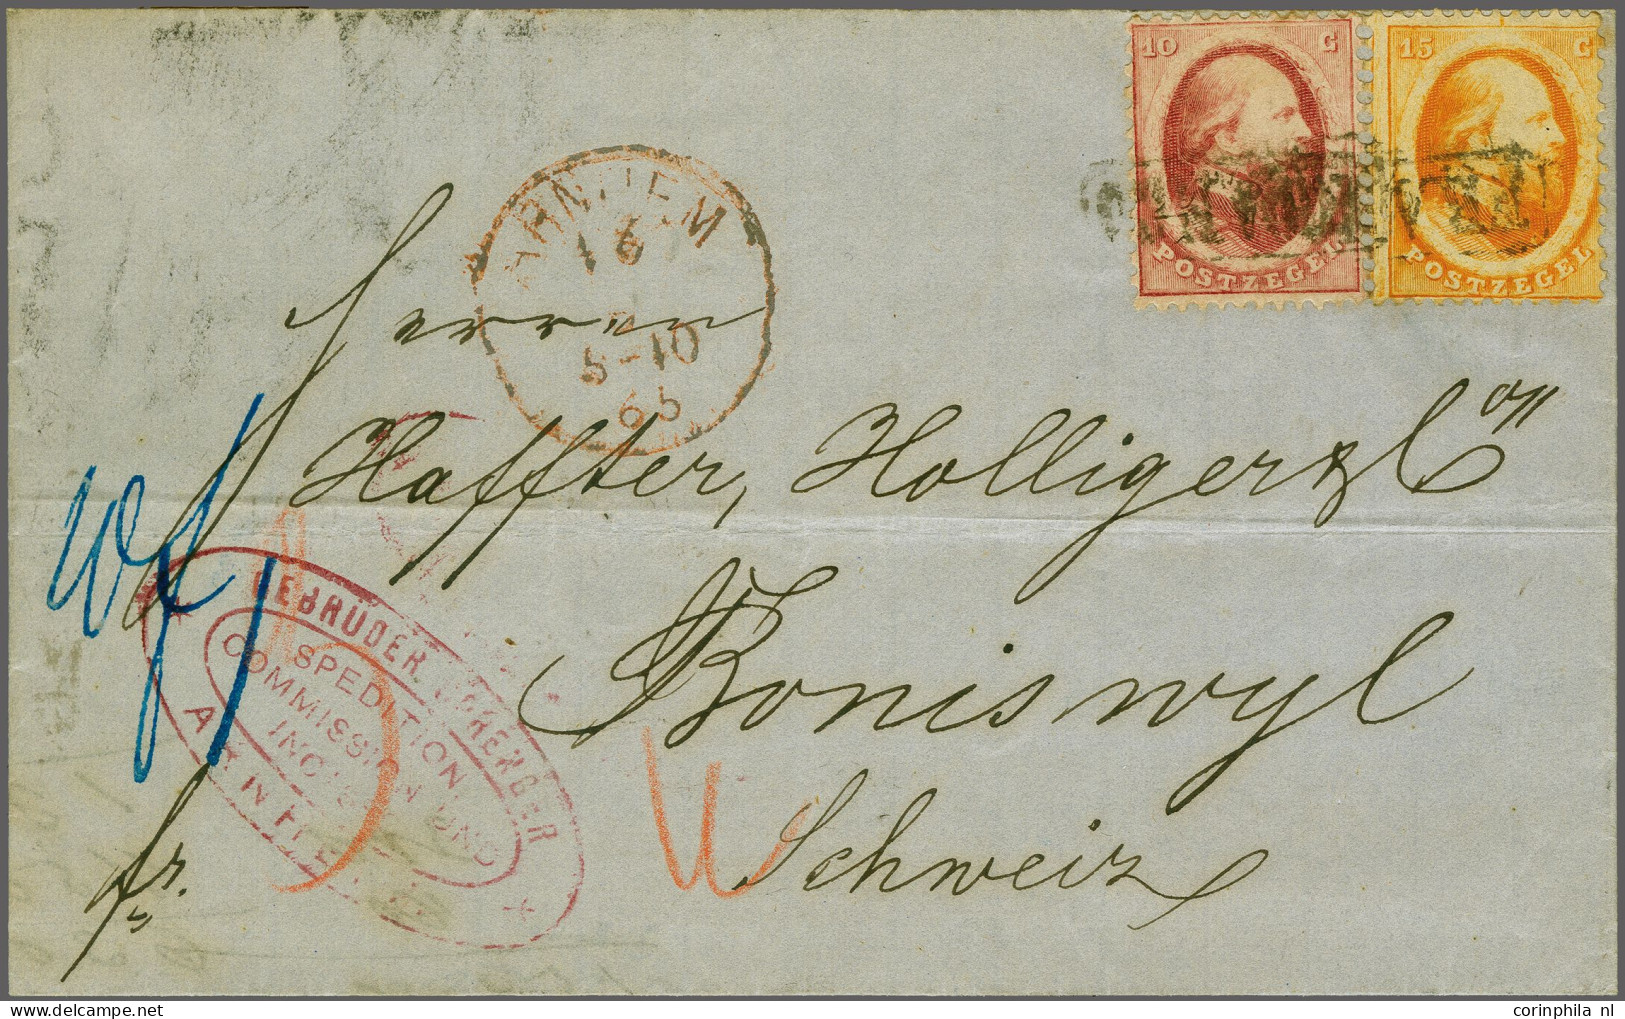 10 C
15 C
POSTZEGEL
POSTZEGEL
FRANCO
ARNHEM
16
8-10
65
Herren
Haffter, Holliger & Cᵒ
Boniswyl
Schweiz
fr.
GEBRÜDER
SPEDITION
COMMISSION UND
ARNHEM
corinphila nl